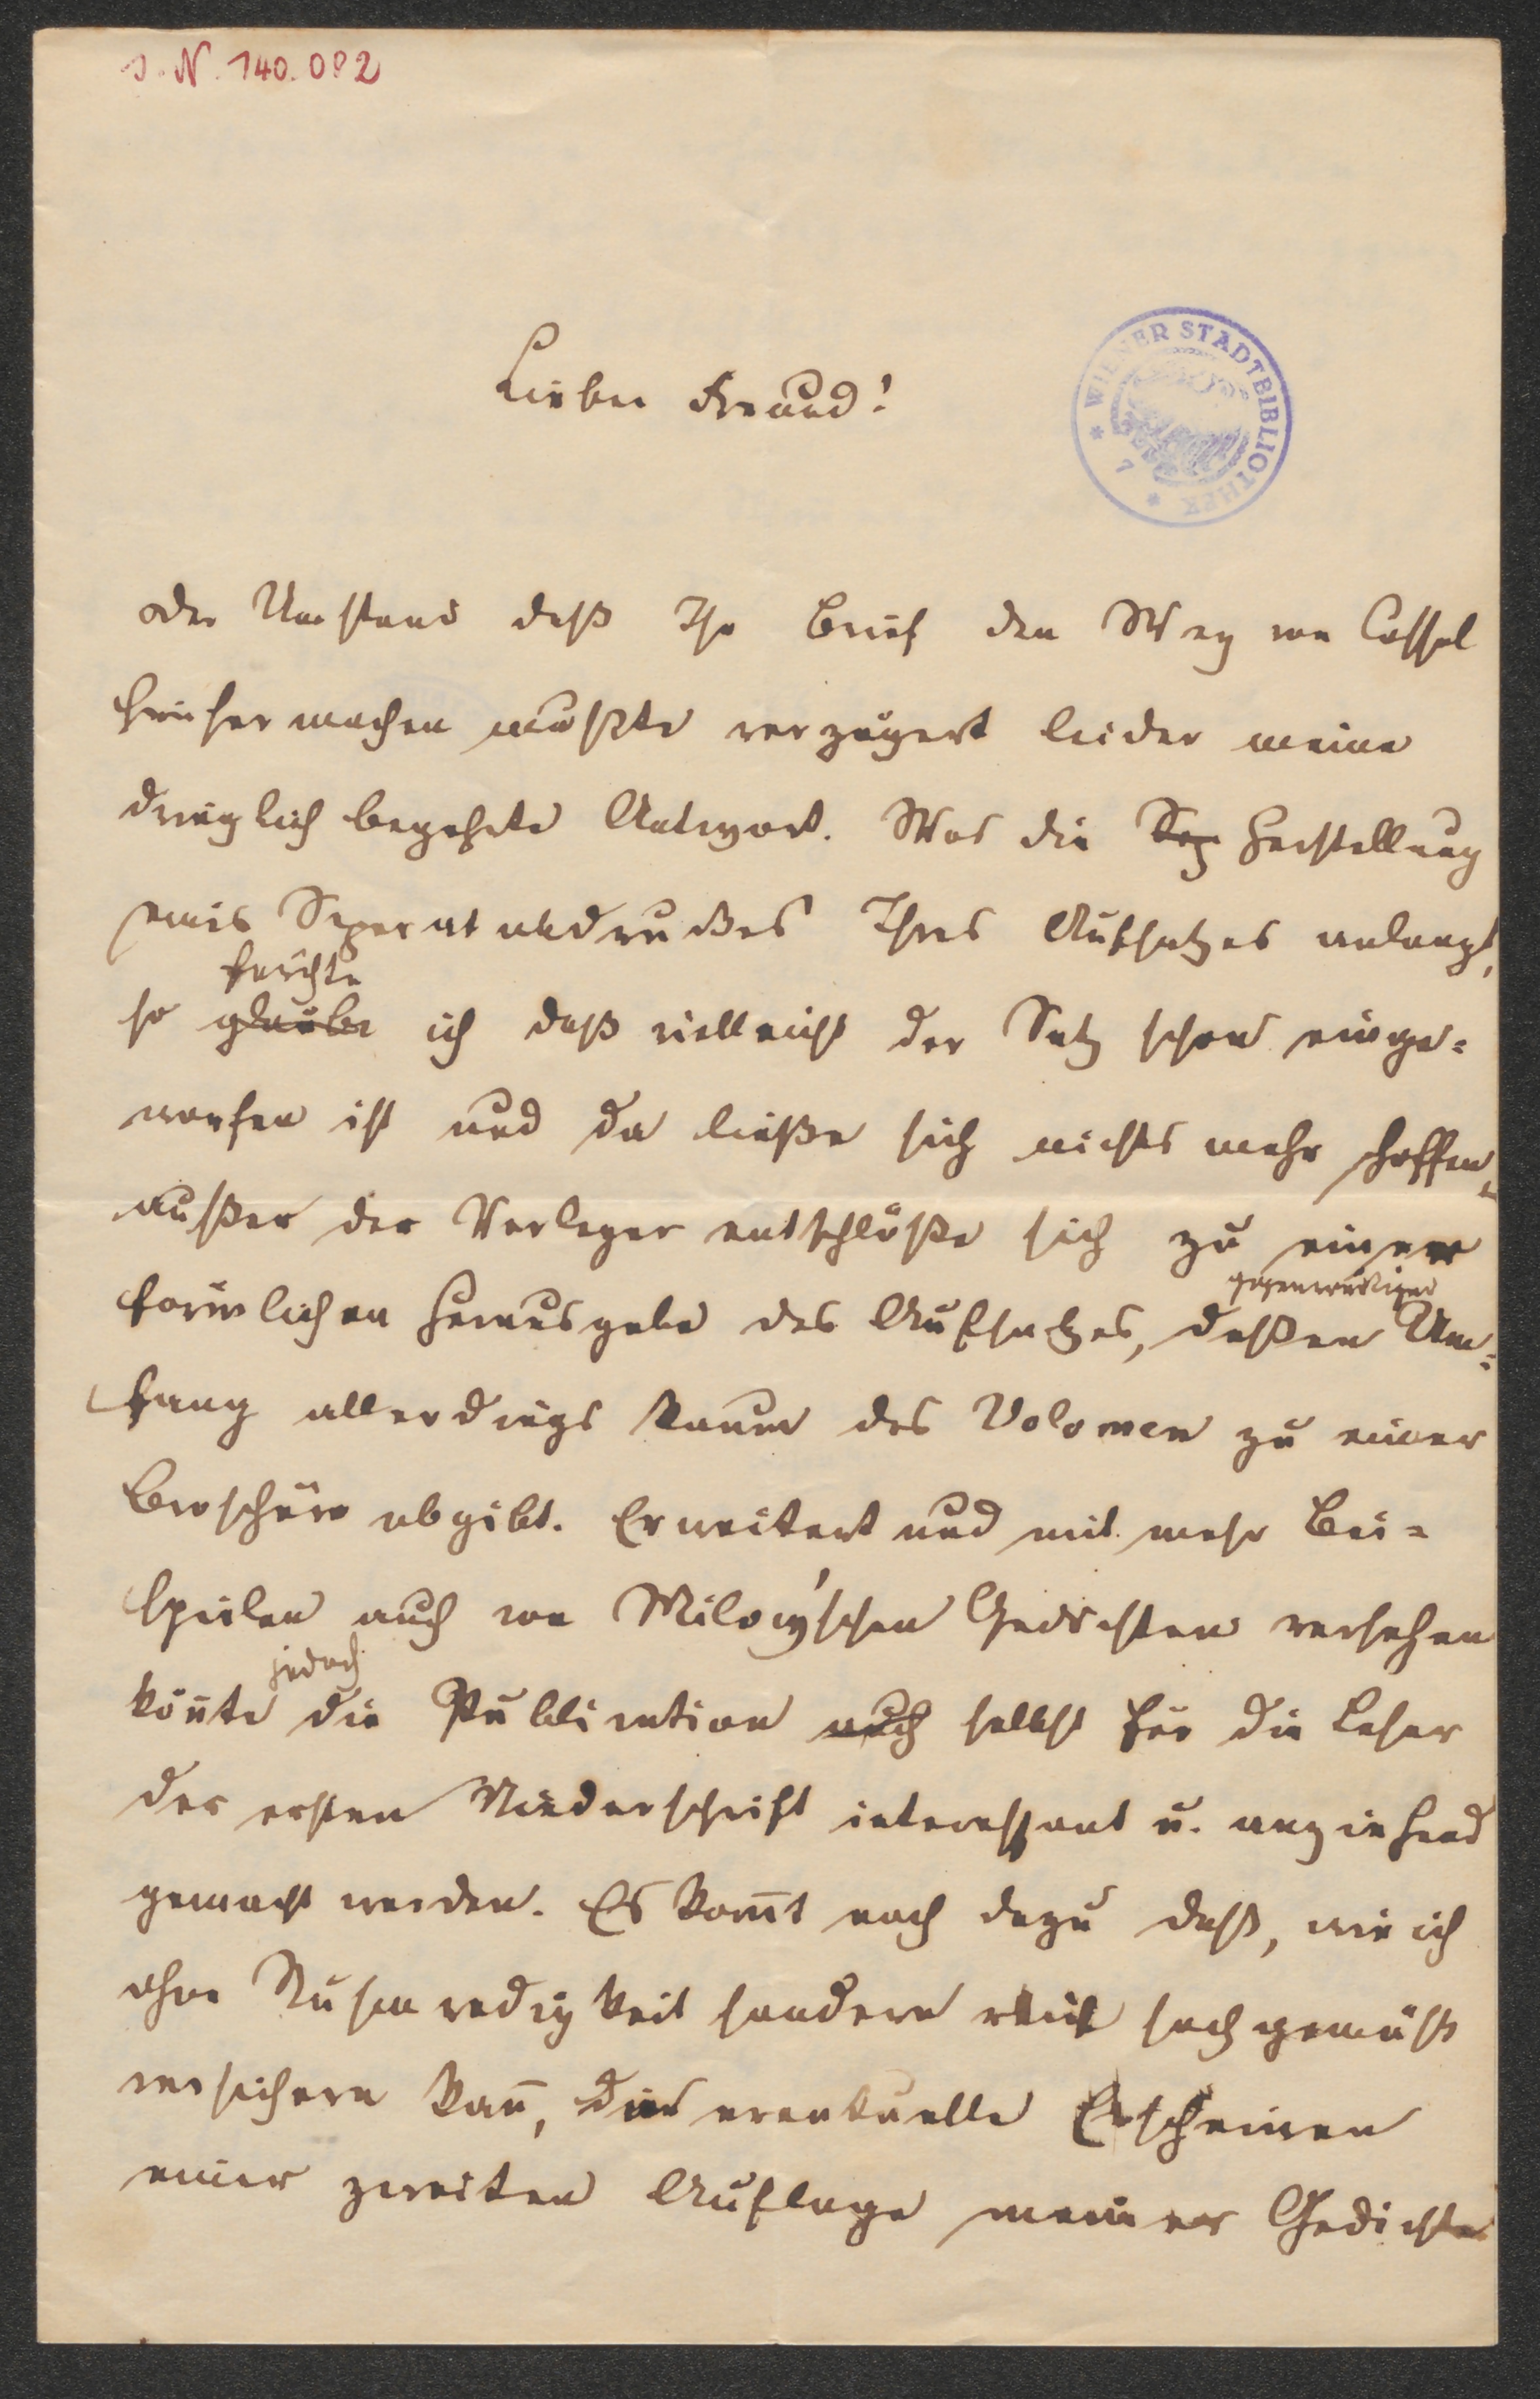 I. N. 140.082
Lieber Freund!
WIENER STADTBIBLIOTHEK
der Umstand daß Ihr Brief den Weg von Cassel
hierher machen mußte verzögert leider meine
dringlich begehrte Antwort. Was die Sep Herstellung
eines Separatabdruckes Ihres Aufsatzes anlangt,
fürchte
so glaube ich daß vielleicht der Satz schon einge=
worfen ist und da ließe sich nichts mehr schaffen,
außer der Verleger entschlöße sich zu einer
gegenwärtiger
förmlichen Herausgabe des Aufsatzes, deßen Um=
fang allerdings kaum das Volomen zu einer
Broschüre abgibt. Erweitert und mit mehr Bei=
spielen auch von Milow'schen Gedichten versehen
jedoch
könnte die Publication auch selbst für die Leser
der ersten Niederschrift interessant u. anziehend
gemacht werden. Es kommt noch dazu daß, wie ich
ohne Ruhmredigkeit sondern sachgemäß
versichern kann, das eventuelle Erscheinen
einer zweiten Auflage meiner Gedichte